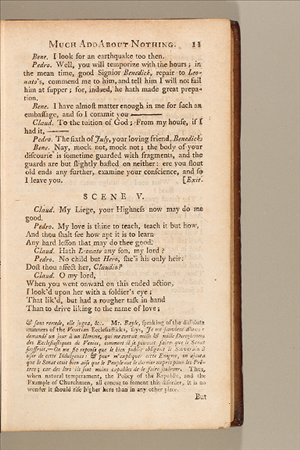 MUCH ADO ABOUT NOTHING. 11
Bene. I look for an earthquake too then.
Pedro. Well, you will temporize with the hours; in
the mean time, good Signior Benedick, repair to Leo-
nato's, commend me to him, and tell him I will not fail
him at supper; for, indeed, he hath made great prepa-
ration.
Bene. I have almost matter enough in me for such an
embassage, and so I commit you ———
Claud. To the tuition of God; From my house, if I
had it, ———
Pedro. The sixth of July, your loving friend, Benedick.
Bene. Nay, mock not, mock not; the body of your
discourse is sometime guarded with fragments, and the
guards are but slightly basted on neither: ere you flout
old ends any further, examine your conscience, and so
I leave you. [Exit.
SCENE V.
Claud. My Liege, your Highness now may do me
good.
Pedro. My love is thine to teach, teach it but how,
And thou shalt see how apt it is to learn
Any hard lesson that may do thee good.
Claud. Hath Leonato any son, my lord?
Pedro. No child but Hero, she's his only heir:
Dost thou affect her, Claudio?
Claud. O my lord,
When you went onward on this ended action,
I look'd upon her with a soldier's eye;
That lik'd, but had a rougher task in hand
Than to drive liking to the name of love;
Mr. Bayle, speaking of the
of the Venetian Ecclesiasticks, says,
des Ecclesiastiques de Venise, comment il se
le bien public
Thus,
when natural temperament, the Policy of the Republic, and the
Example of Churchmen, all concur to foment this disorder, it is no
wonder it should rise higher here than in any other place.
But